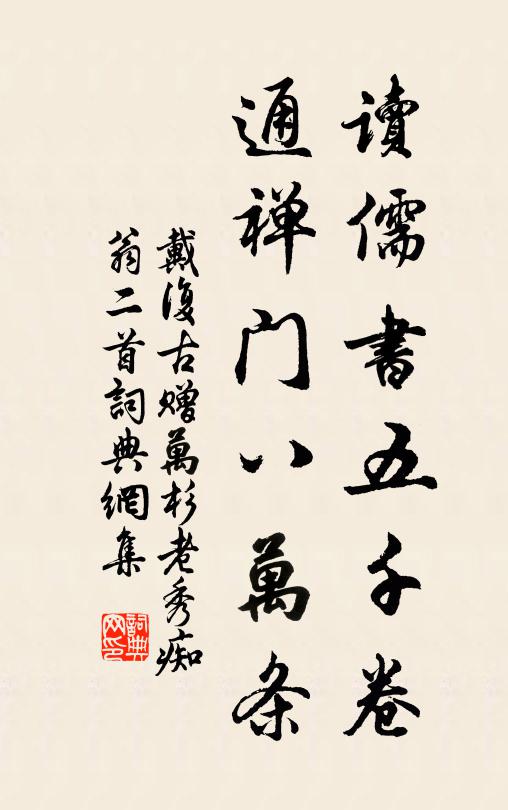 讀儒書五千卷
通禅門八萬条
戴復古贈萬杉老秀痴
翁二首詞典網集
詞典
网印